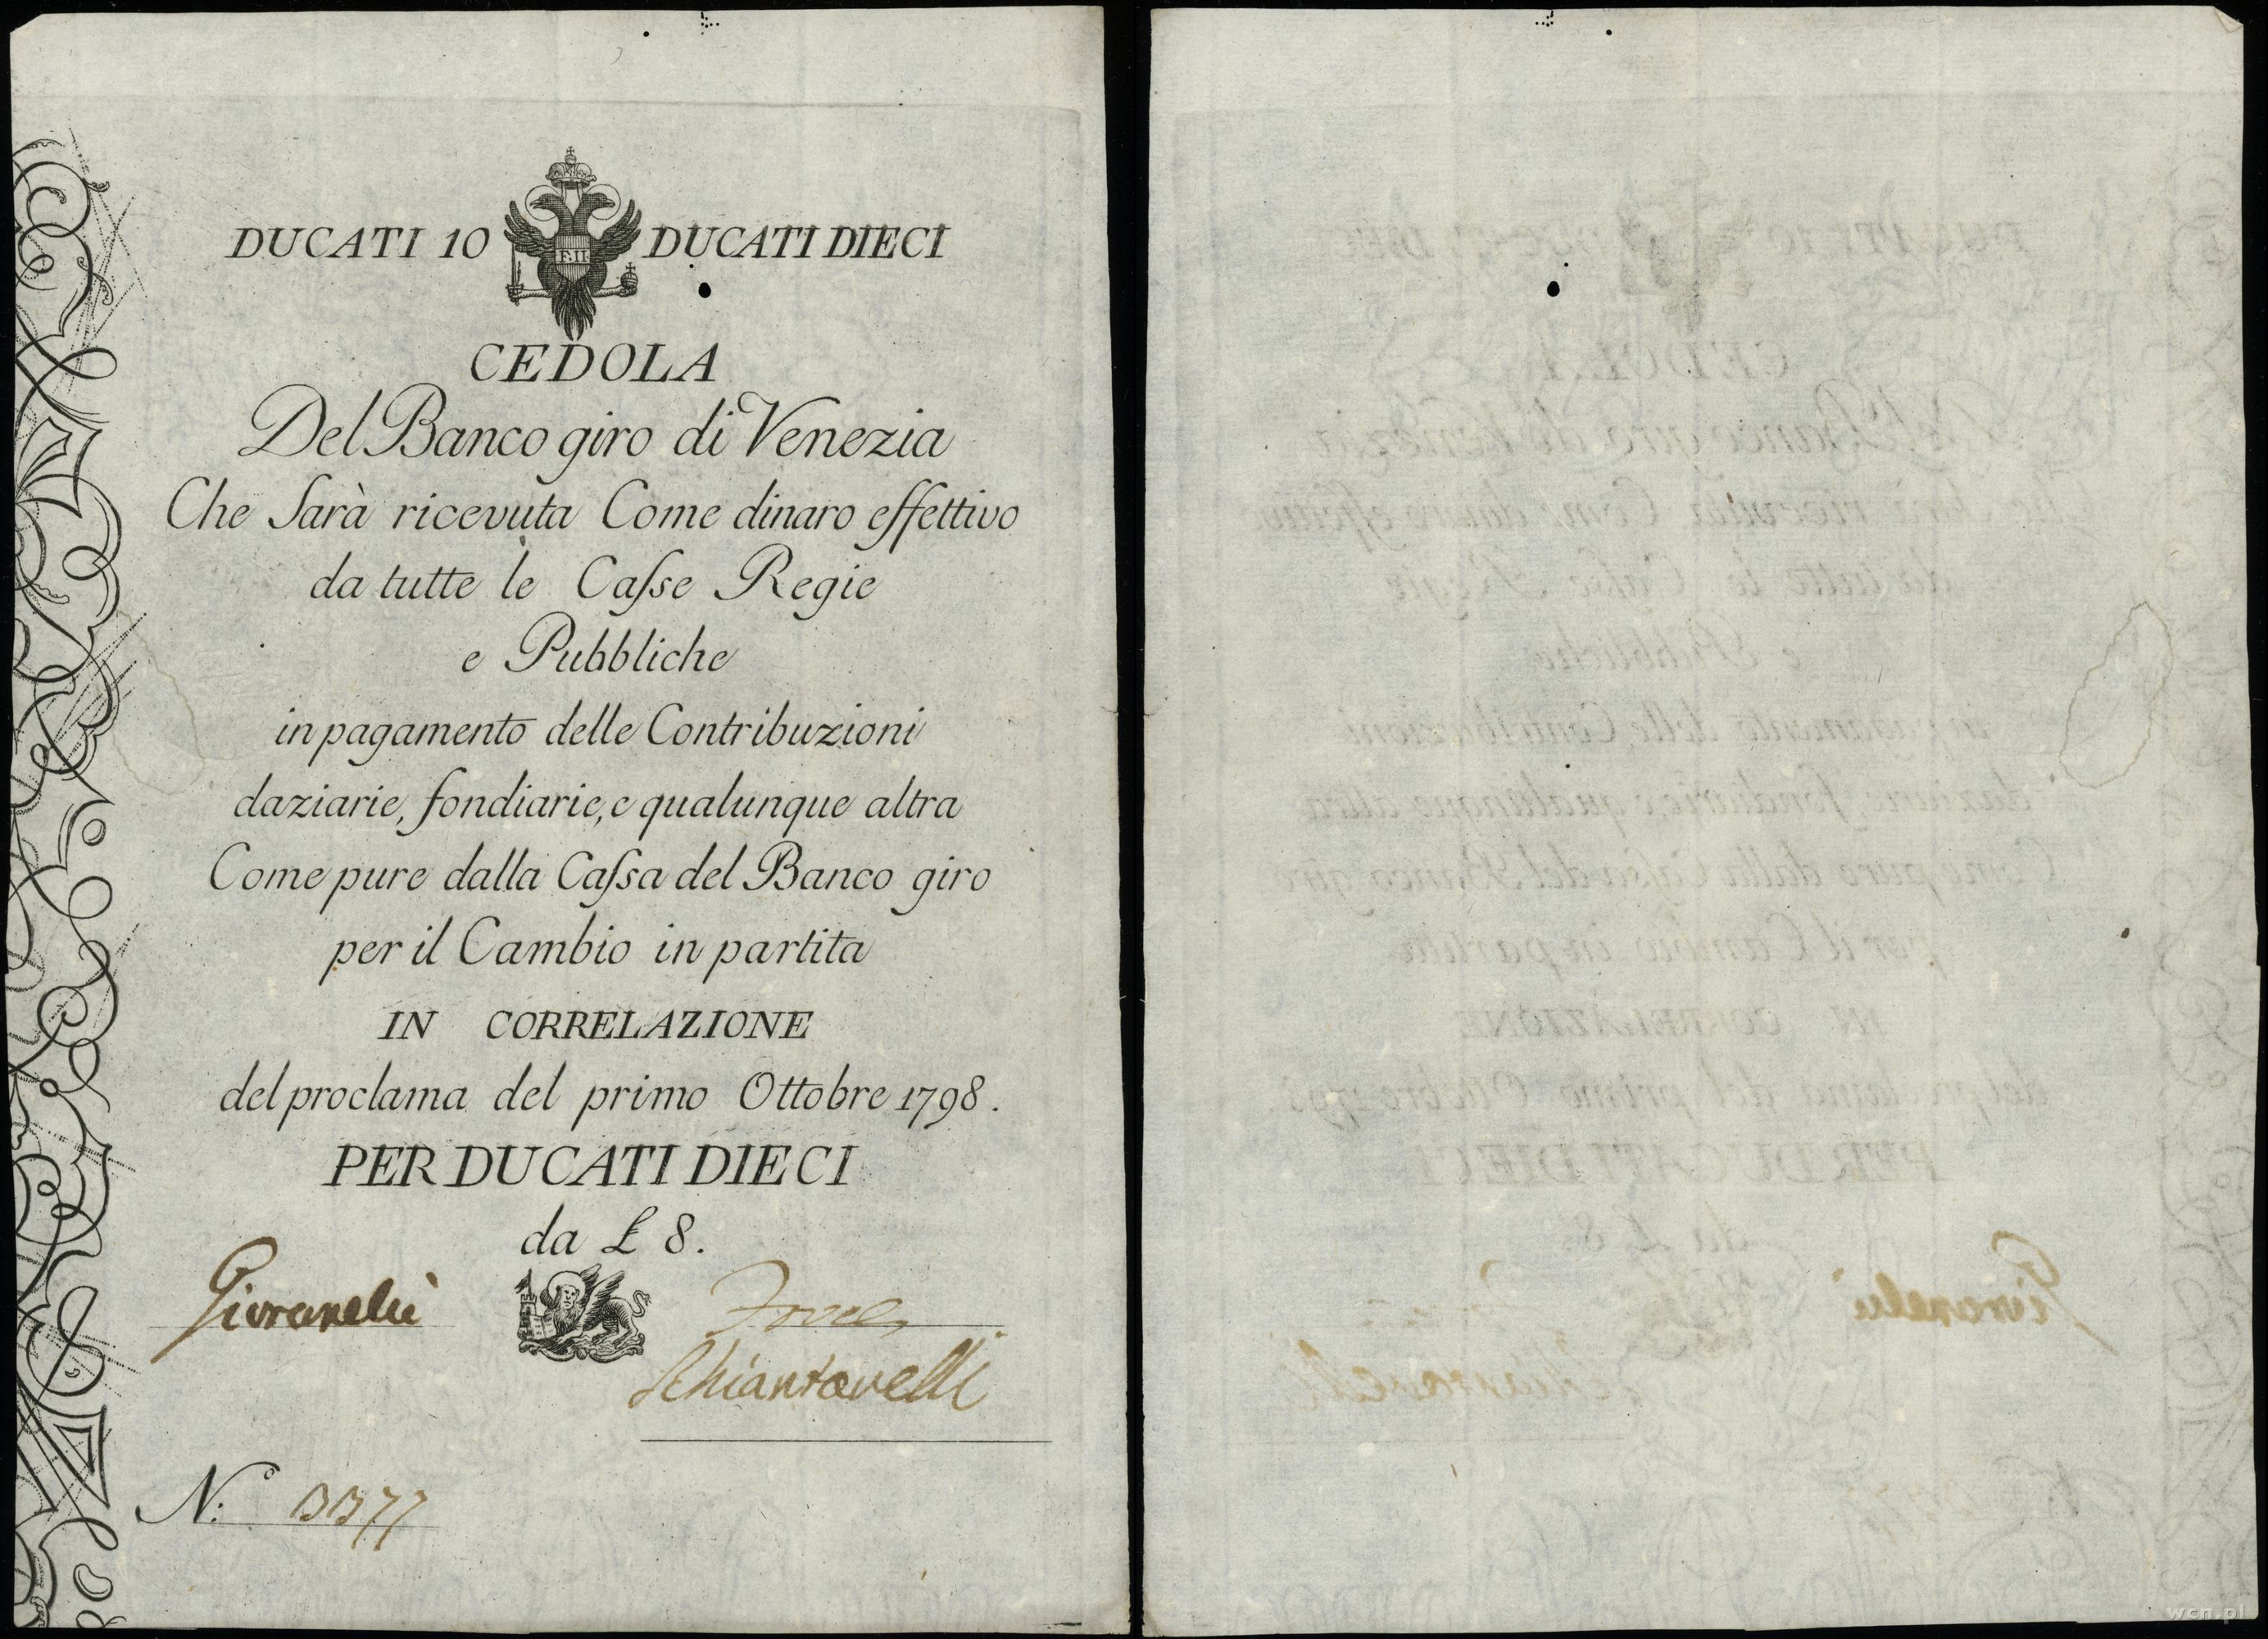 DUCATI 10 DUCATI DIECI
F.II
CEDOLA
Del Banco giro di Venezia
Che Sarà ricevuta Come dinaro effettivo
da tutte le Caſse Regie
e Pubbliche
in pagamento delle Contribuzioni
daziarie, fondiarie, e qualunque altra
Come pure dalla Caſsa del Banco giro
per il Cambio in partita
IN CORRELAZIONE
del proclama del primo Ottobre 1798.
PER DUCATI DIECI
da £ 8.
Giovanelli
Schiantarelli
N.º
wcn.pl